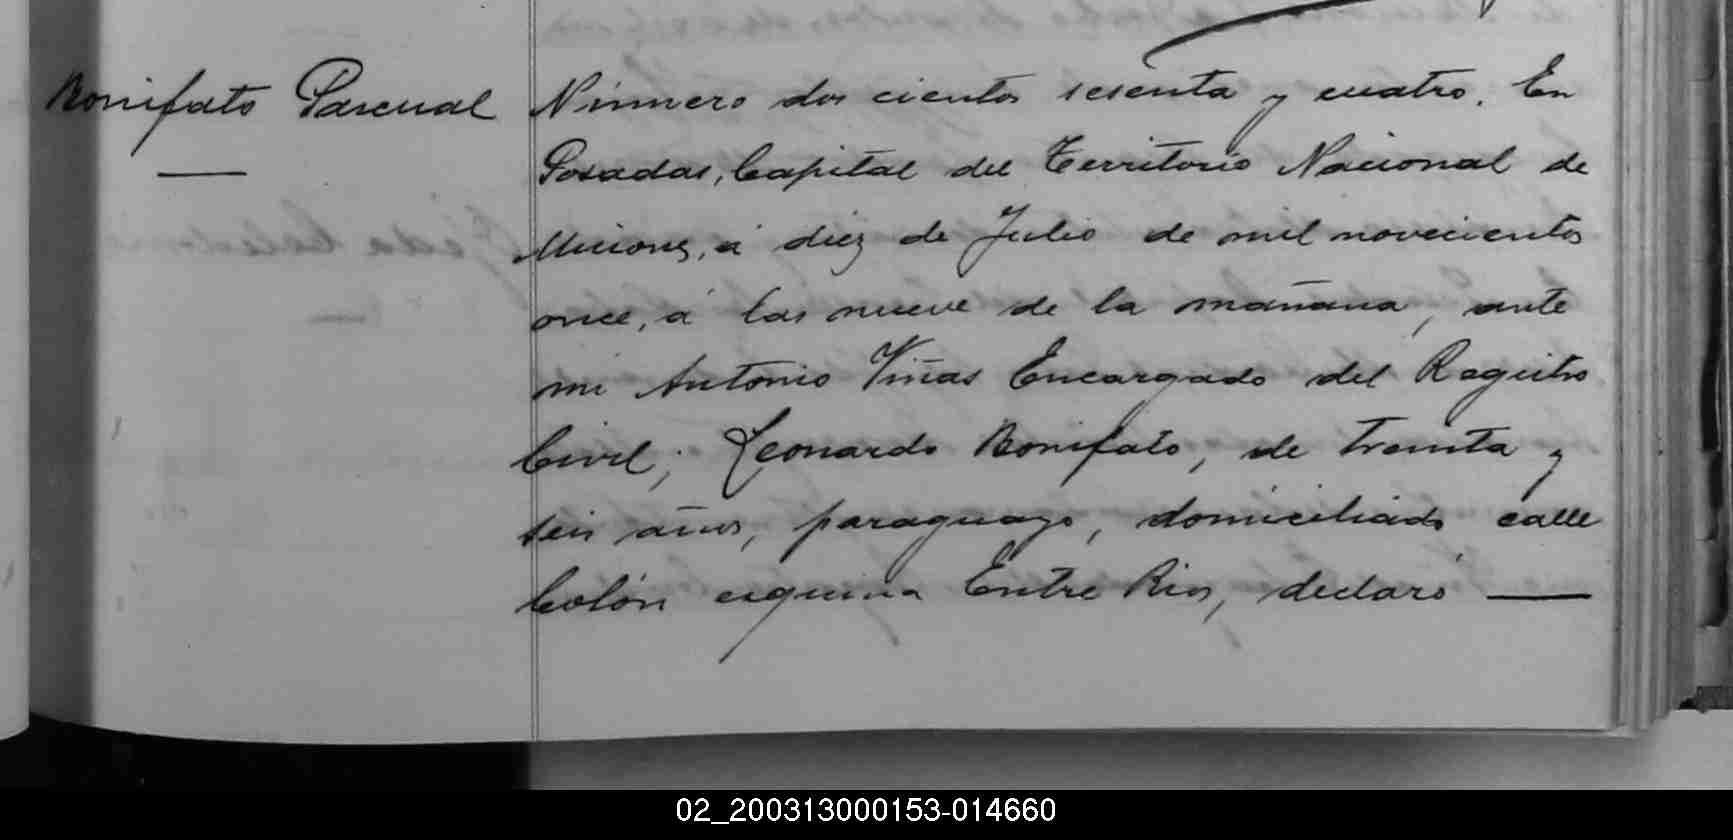 Bonifato Pascual
Número dos cientos sesenta y cuatro. En
Posadas, Capital del Territorio Nacional de
Misiones, á diez de Julio de mil novecientos
once, á las nueve de la mañana, ante
mi Antonio Viñas Encargado del Registro
Civil; Leonardo Bonifato, de treinta y
seis años, paraguayo, domiciliado calle
Colón esquina Entre Rios, declaró —
02_200313000153-014660